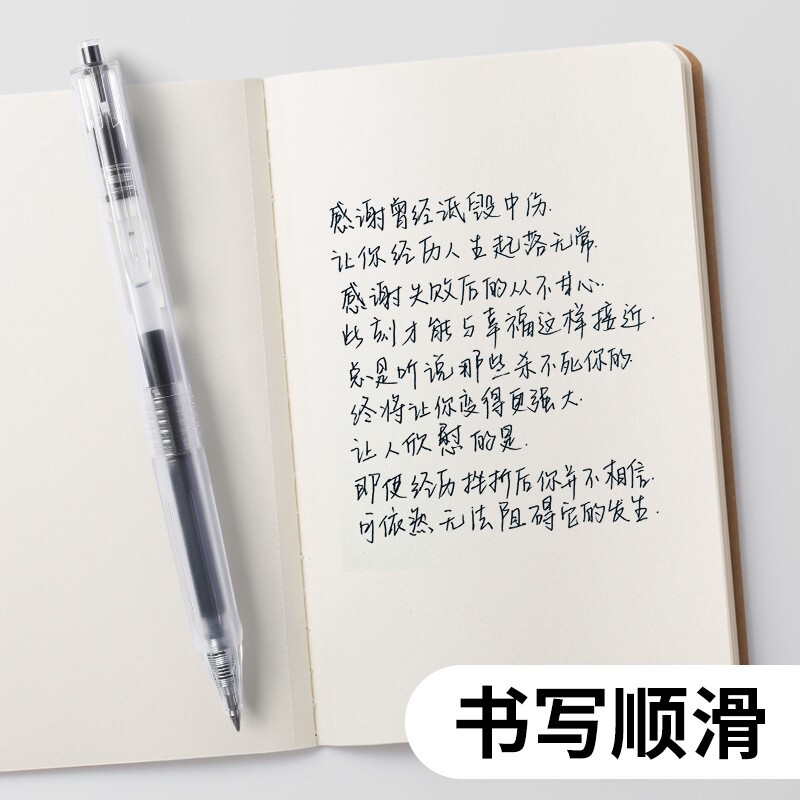 感谢曾经诋毁中伤.
让你经历人生起落无常.
感谢失败后的从不甘心.
此刻才能与幸福这样接近.
总是听说那些杀不死你的.
终将让你变得更强大.
让人欣慰的是.
即使经历挫折后你并不相信.
可依然无法阻碍它的发生.
书写顺滑